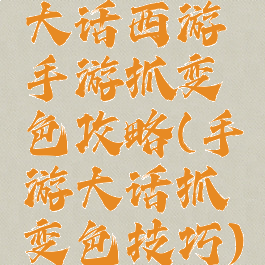 大话西游
手游抓变
色攻略(手
游大话抓
变色技巧)